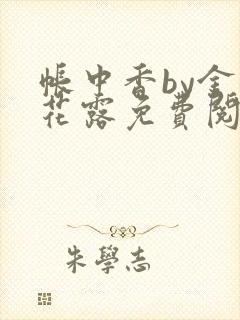 帳中香by金
花露免費閱
朱學志